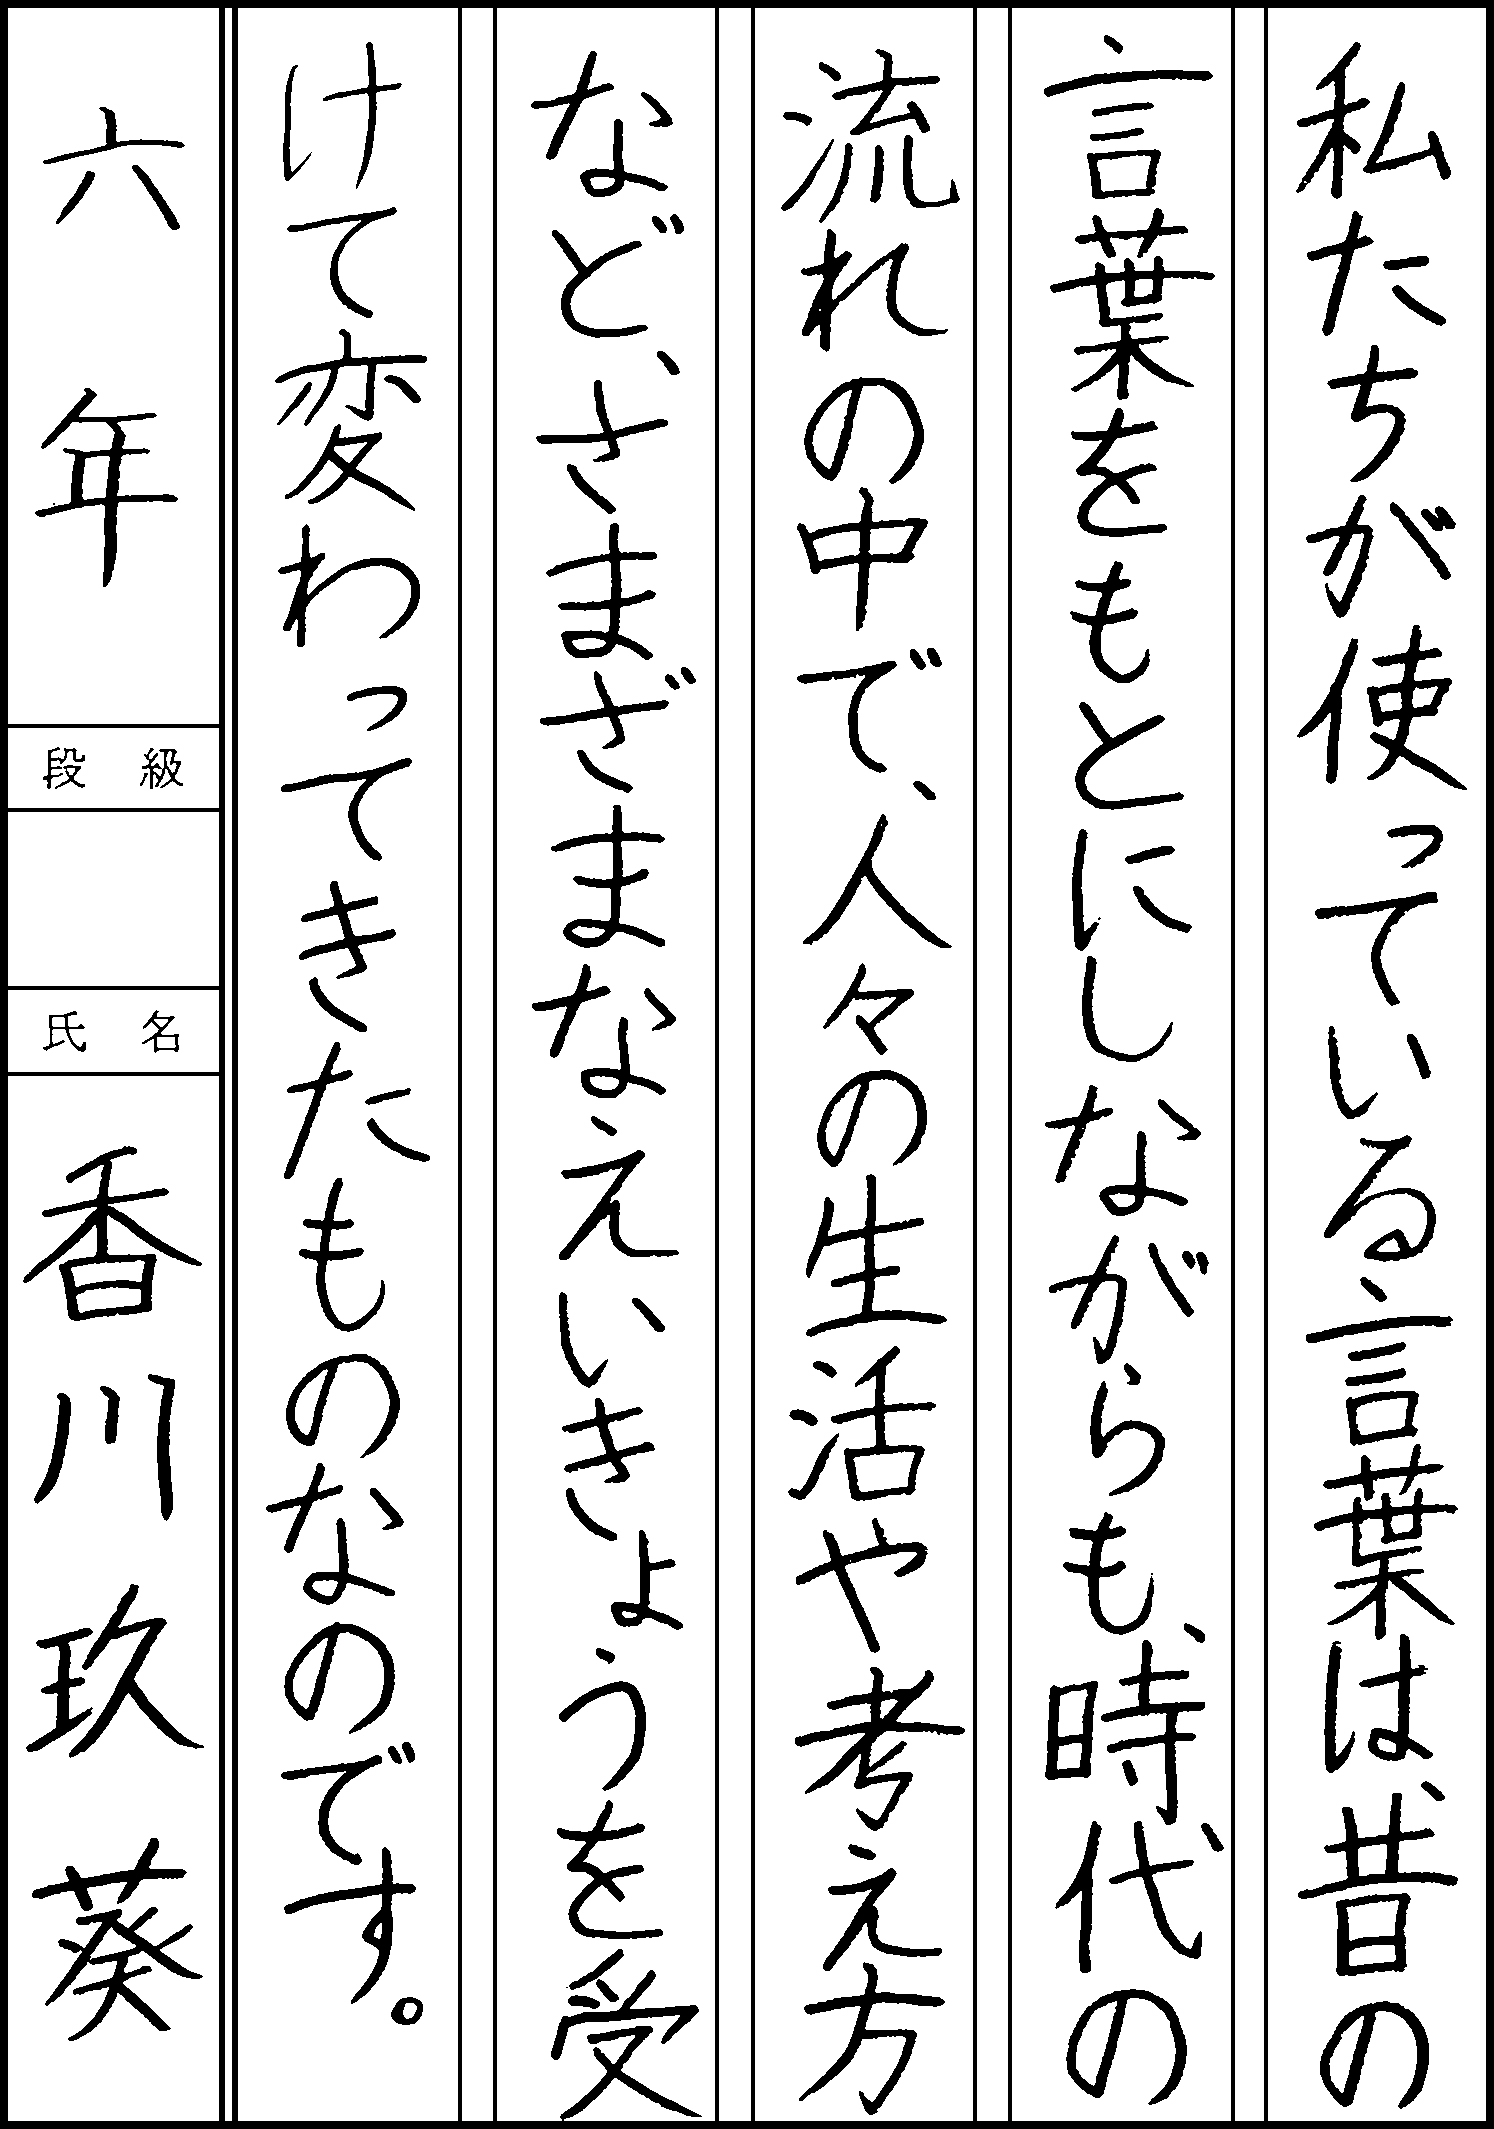 私たちが使っている言葉は、昔の
言葉をもとにしながらも、時代の
流れの中で、人々の生活や考え方
など、さまざまなえいきょうを受
けて変わってきたものなのです。
六年
段級
氏名
香川玖葵